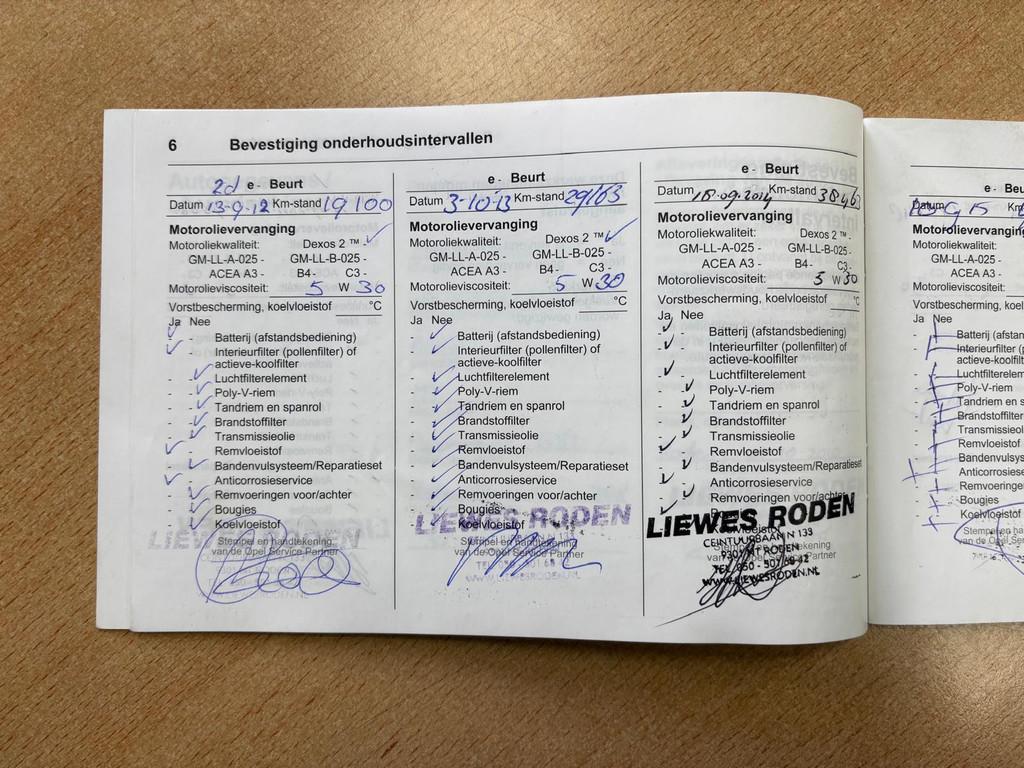 6 Bevestiging onderhoudsintervallen
2d e - Beurt
Datum 13-9-12 Km-stand 19100
Motorolievervanging
Motoroliekwaliteit: Dexos 2 ™ -
GM-LL-A-025 - GM-LL-B-025 -
ACEA A3 - B4 - C3 -
Motorolieviscositeit: 5 W 30
Vorstbescherming, koelvloeistof °C
Ja Nee
- Batterij (afstandsbediening)
- Interieurfilter (pollenfilter) of
actieve-koolfilter
- Luchtfilterelement
- Poly-V-riem
- Tandriem en spanrol
- Brandstoffilter
- Transmissieolie
- Remvloeistof
- Bandenvulsysteem/Reparatieset
- Anticorrosieservice
- Remvoeringen voor/achter
- Bougies
- Koelvloeistof
Stempel en handtekening
van de Opel Service Partner
e - Beurt
Datum 3-10-13 Km-stand 29163
Motorolievervanging
Motoroliekwaliteit: Dexos 2 ™
GM-LL-A-025 - GM-LL-B-025 -
ACEA A3 - B4 - C3 -
Motorolieviscositeit: 5 W 30
Vorstbescherming, koelvloeistof °C
Ja Nee
- Batterij (afstandsbediening)
- Interieurfilter (pollenfilter) of
actieve-koolfilter
- Luchtfilterelement
- Poly-V-riem
- Tandriem en spanrol
- Brandstoffilter
- Transmissieolie
- Remvloeistof
- Bandenvulsysteem/Reparatieset
- Anticorrosieservice
- Remvoeringen voor/achter
- Bougies
- Koelvloeistof
LIEWES RODEN
Stempel en handtekening
van de Opel Service Partner
e - Beurt
Datum 18-09-2014 Km-stand
Motorolievervanging
Motoroliekwaliteit: Dexos 2 ™ -
GM-LL-A-025 - GM-LL-B-025 -
ACEA A3 - B4 - C3 -
Motorolieviscositeit: 5 W 30
Vorstbescherming, koelvloeistof °C
Ja Nee
- Batterij (afstandsbediening)
- Interieurfilter (pollenfilter) of
actieve-koolfilter
- Luchtfilterelement
- Poly-V-riem
- Tandriem en spanrol
- Brandstoffilter
- Transmissieolie
- Remvloeistof
- Bandenvulsysteem/Reparatieset
- Anticorrosieservice
- Remvoeringen voor/achter
LIEWES RODEN
CEINTUURBAAN N 133
RODEN
TEL. 050 - 501 68 42
WWW.LIEWESRODEN.NL
e - Beu
Datum
Motorolievervanging
Motoroliekwaliteit:
GM-LL-A-025 -
ACEA A3 -
Motorolieviscositeit:
Vorstbescherming, koel
Ja Nee
Batterij (afstan
Interieurfilter (
actieve-koolfil
Luchtfilterelem
Poly-V-riem
Tandriem en s
Brandstoffilter
Transmissieol
Remvloeistof
Bandenvulsys
Anticorrosiese
Remvoeringen
Bougies
Koelvloeistof
Stempel en han
van de Opel Ser